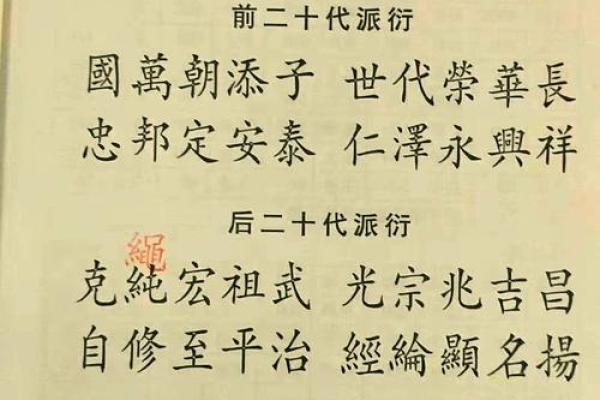 前二十代派衍
國萬朝添子 世代榮華長
忠邦定安泰 仁澤永興祥
后二十代派衍
繩
克純宏祖武 光宗兆吉昌
自修至平治 經綸顯名揚